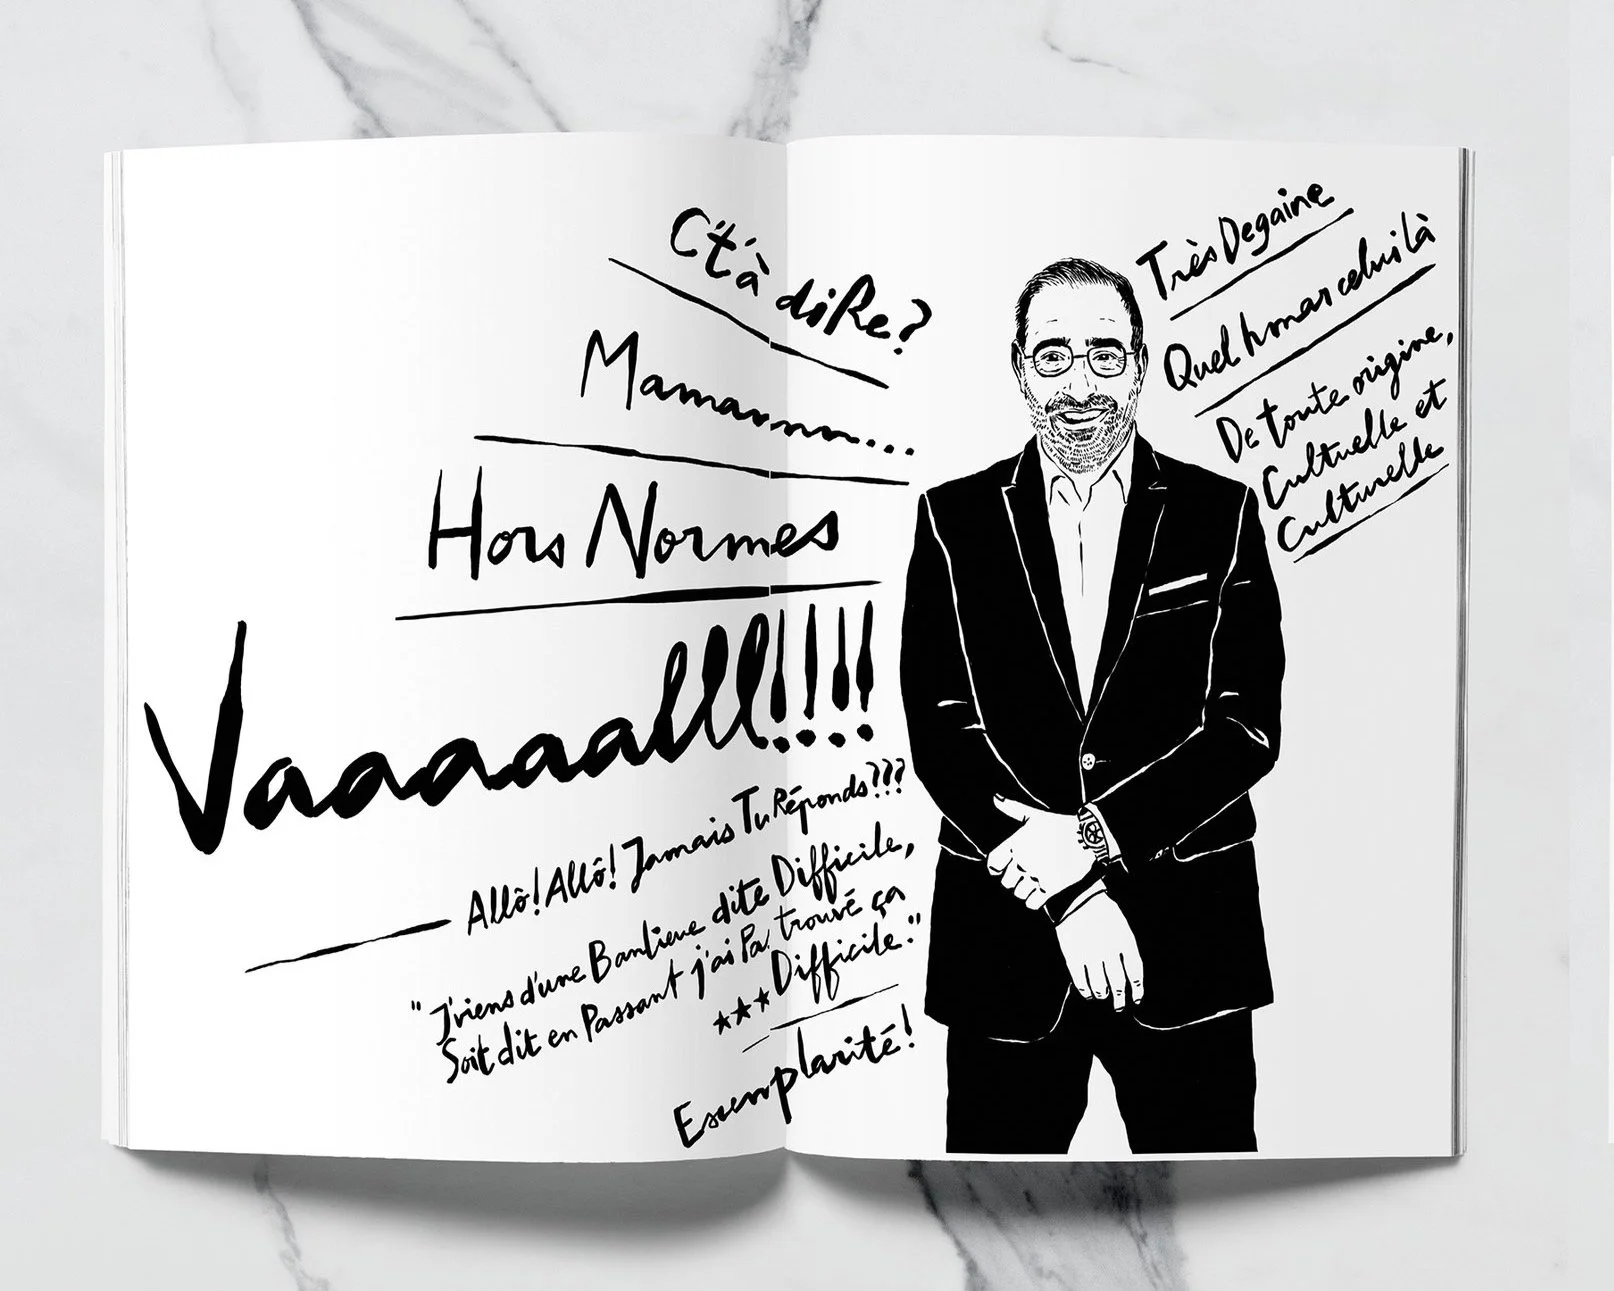 C't'à diRe?
Mamannnn...
Hors Normes
Vaaaaaalll!!!!
Allô! Allô! Jamais Tu Réponds???
"J'viens d'une Banlieue dite Difficile,
Soit dit en Passant j'ai Pa trouvé ça
★★★ Difficile."
Exemplarité!
Très Degaine
Quel homar celui là
De toute origine,
Culturelle et
Culturelle